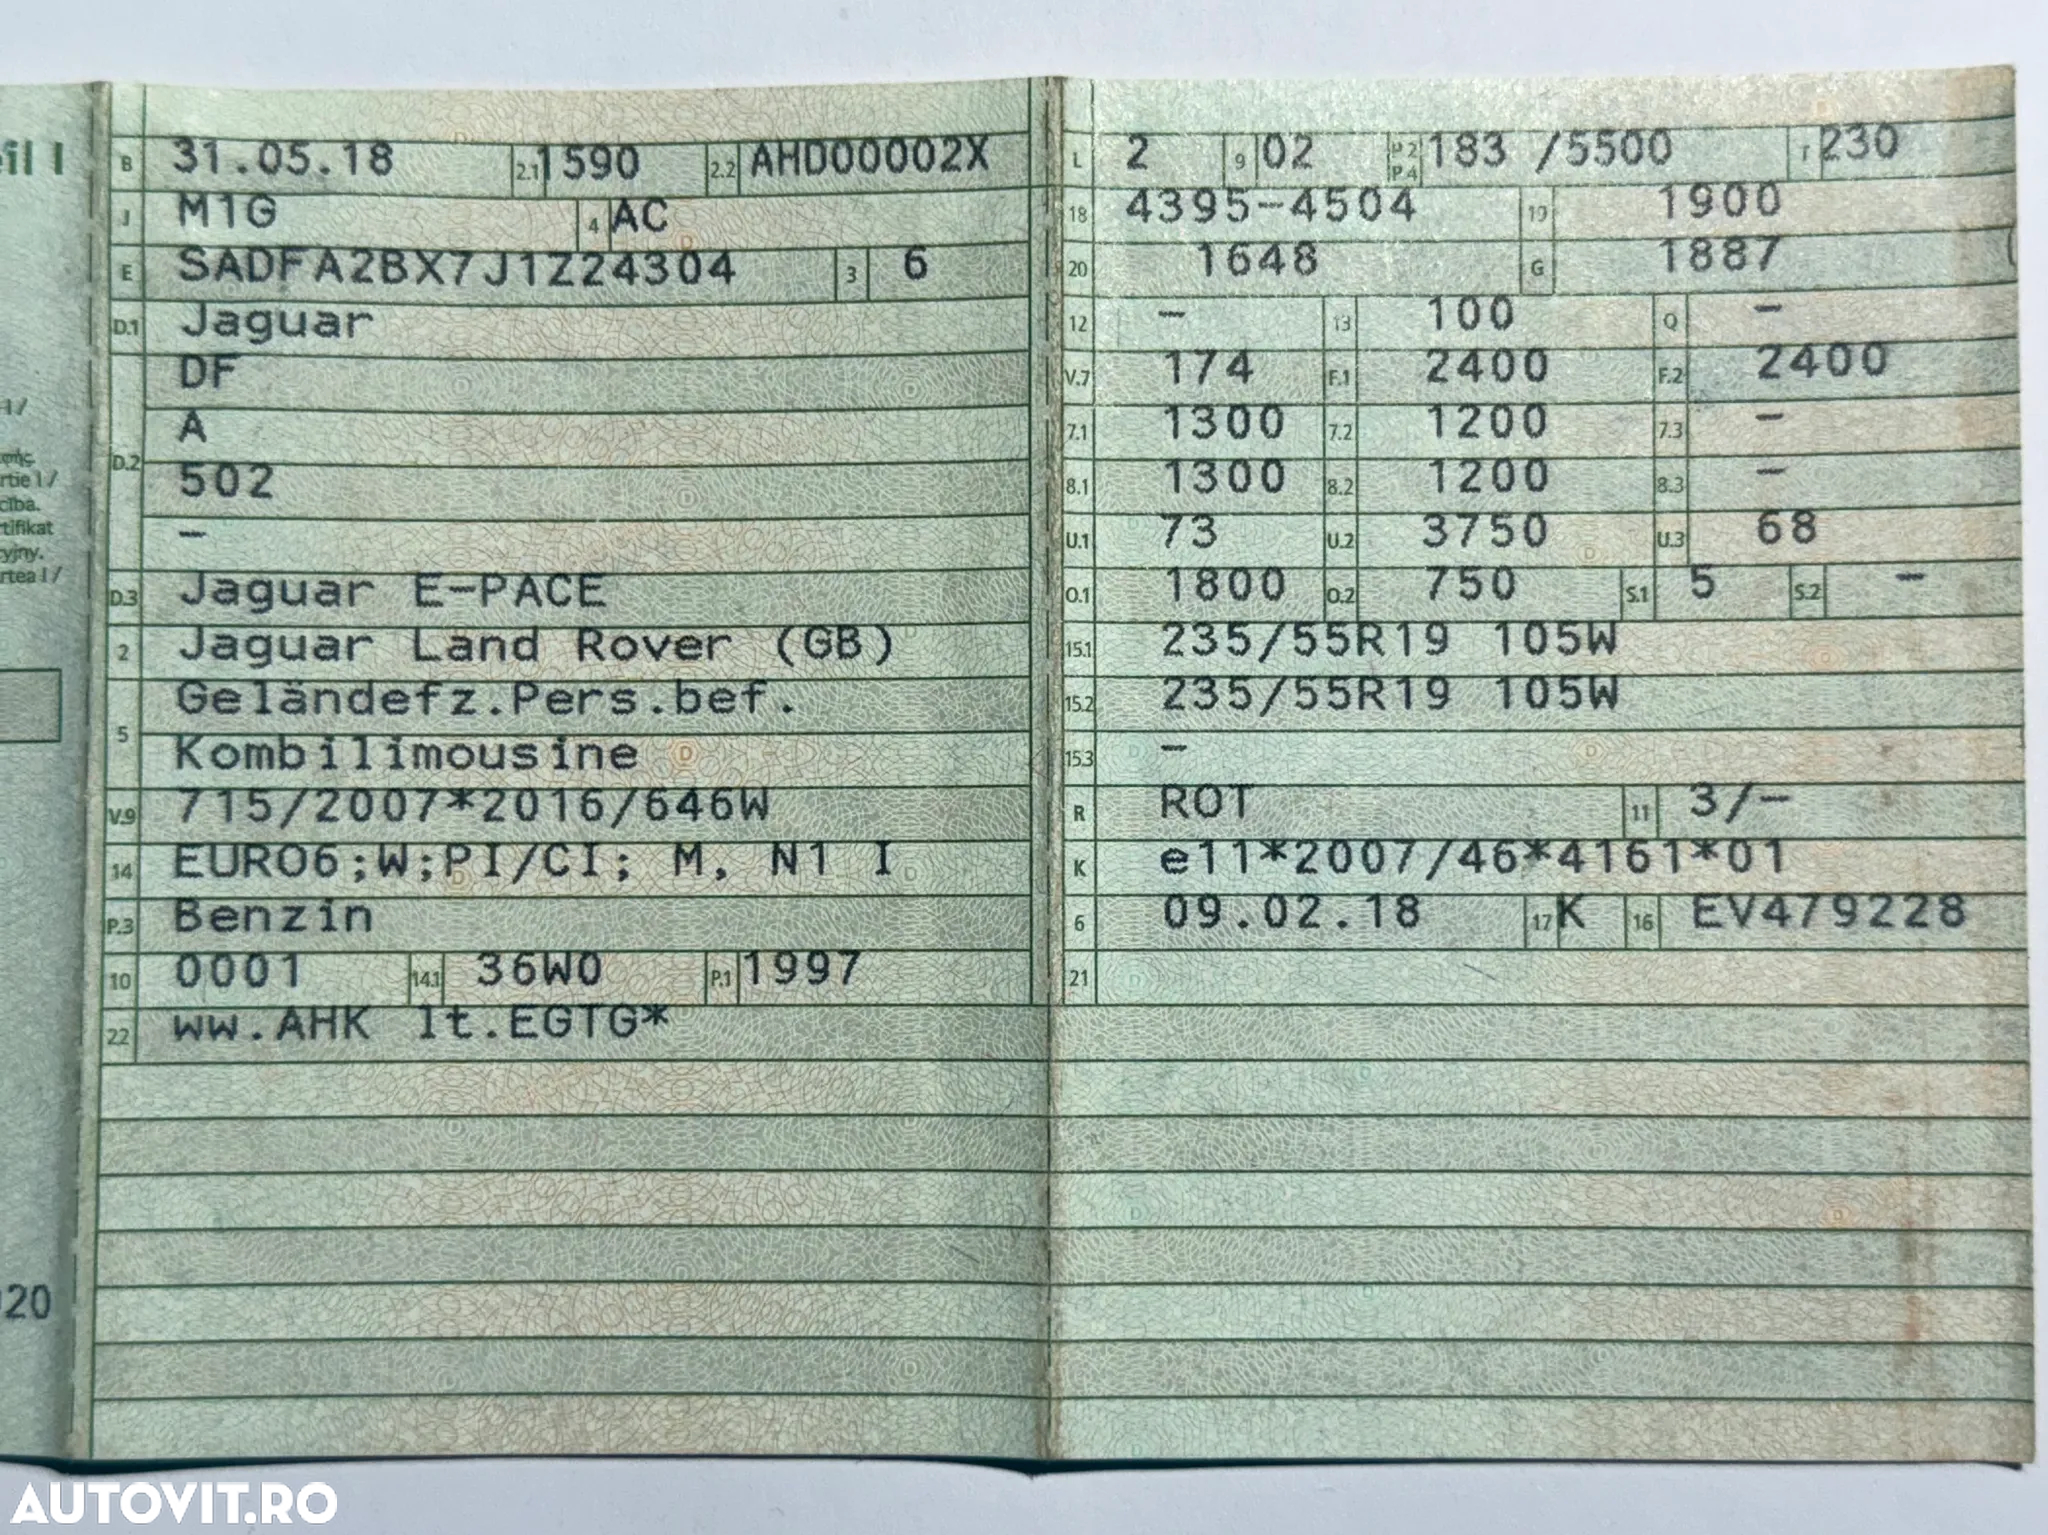 eil I
-I /
rtie I /
cība.
rtifikat
yjny.
rtea I /
020
B 31.05.18 2.1 1590 2.2 AHD00002X
J M1G 4 AC
E SADFA2BX7J1Z24304 3 6
D.1 Jaguar
DF
A
D.2
502
–
D.3 Jaguar E-PACE
2 Jaguar Land Rover (GB)
Geländefz.Pers.bef.
5
Kombilimousine
V.9 715/2007*2016/646W
14 EURO6;W;PI/CI; M, N1 I
P.3 Benzin
10 0001 14.1 36W0 P.1 1997
22 ww.AHK lt.EGTG*
L 2 9 02 P.2 P.4 183 /5500 T 230
18 4395-4504 19 1900
20 1648 G 1887
12 – 13 100 Q –
V.7 174 F.1 2400 F.2 2400
7.1 1300 7.2 1200 7.3 –
8.1 1300 8.2 1200 8.3 –
U.1 73 U.2 3750 U.3 68
O.1 1800 O.2 750 S.1 5 S.2 –
15.1 235/55R19 105W
15.2 235/55R19 105W
15.3 –
R ROT 11 3/–
K e11*2007/46*4161*01
6 09.02.18 17 K 16 EV479228
21
AUTOVIT.RO